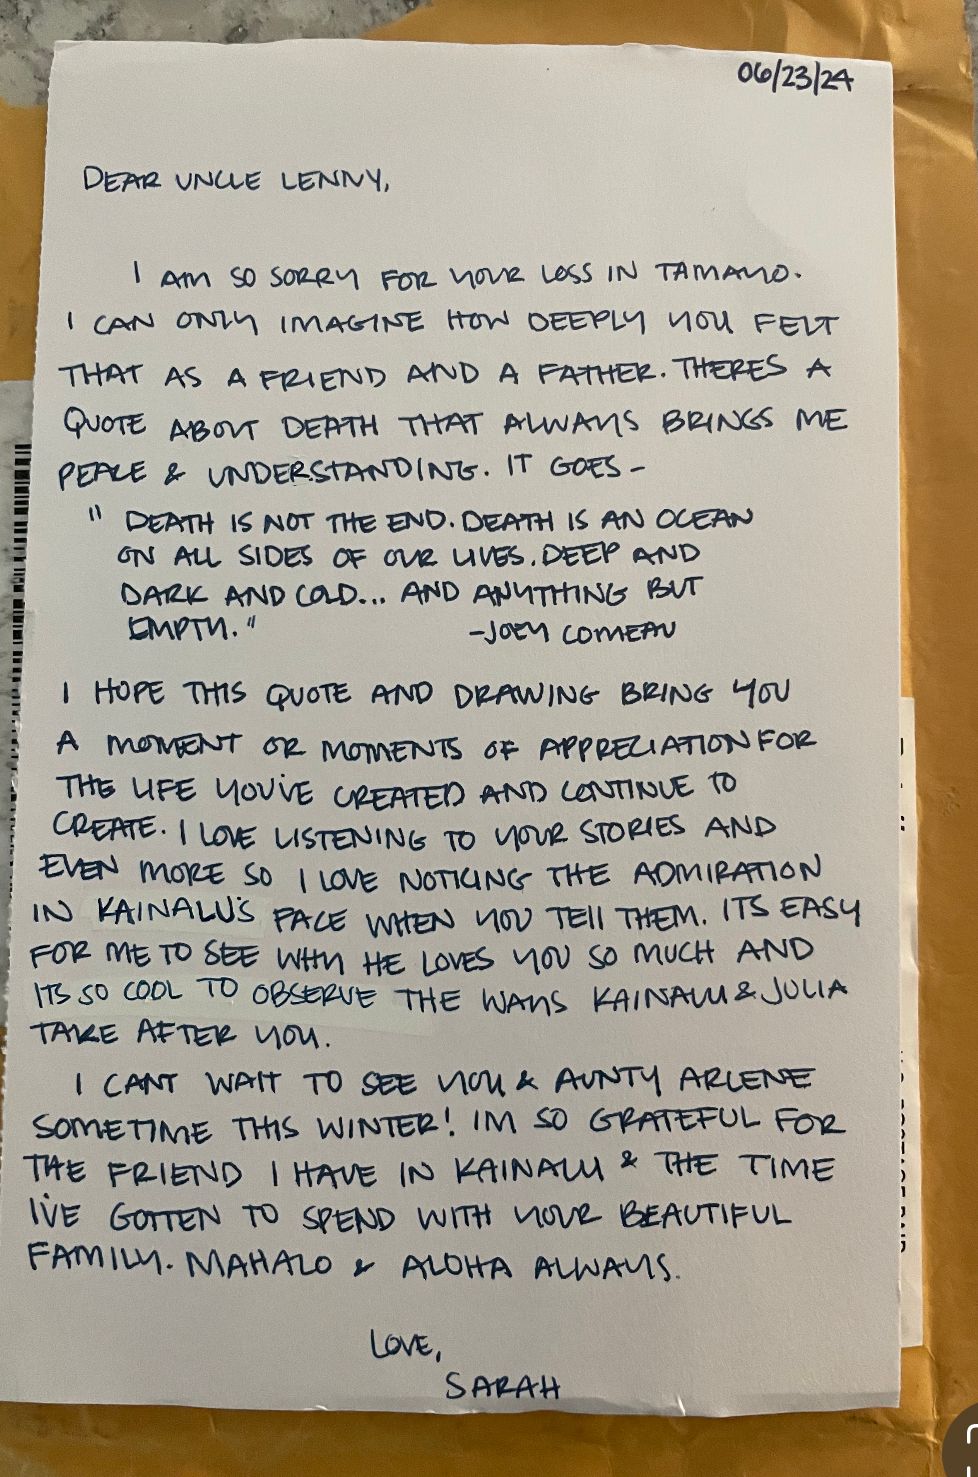 06/23/24
DEAR UNCLE LENNY,
I AM SO SORRY FOR YOUR LOSS IN TAMAYO.
I CAN ONLY IMAGINE HOW DEEPLY YOU FELT
THAT AS A FRIEND AND A FATHER. THERES A
QUOTE ABOUT DEATH THAT ALWAYS BRINGS ME
PEACE & UNDERSTANDING. IT GOES -
" DEATH IS NOT THE END. DEATH IS AN OCEAN
ON ALL SIDES OF OUR LIVES. DEEP AND
DARK AND COLD... AND ANYTHING BUT
EMPTY." -JOEY COMEAU
I HOPE THIS QUOTE AND DRAWING BRING YOU
A MOMENT OR MOMENTS OF APPRECIATION FOR
THE LIFE YOU'VE CREATED AND CONTINUE TO
CREATE. I LOVE LISTENING TO YOUR STORIES AND
EVEN MORE SO I LOVE NOTICING THE ADMIRATION
IN KAINALU'S FACE WHEN YOU TELL THEM. ITS EASY
FOR ME TO SEE WHY HE LOVES YOU SO MUCH AND
ITS SO COOL TO OBSERVE THE WAYS KAINALU & JULIA
TAKE AFTER YOU.
I CANT WAIT TO SEE YOU & AUNTY ARLENE
SOMETIME THIS WINTER! IM SO GRATEFUL FOR
THE FRIEND I HAVE IN KAINALU & THE TIME
I'VE GOTTEN TO SPEND WITH YOUR BEAUTIFUL
FAMILY. MAHALO & ALOHA ALWAYS.
LOVE,
SARAH